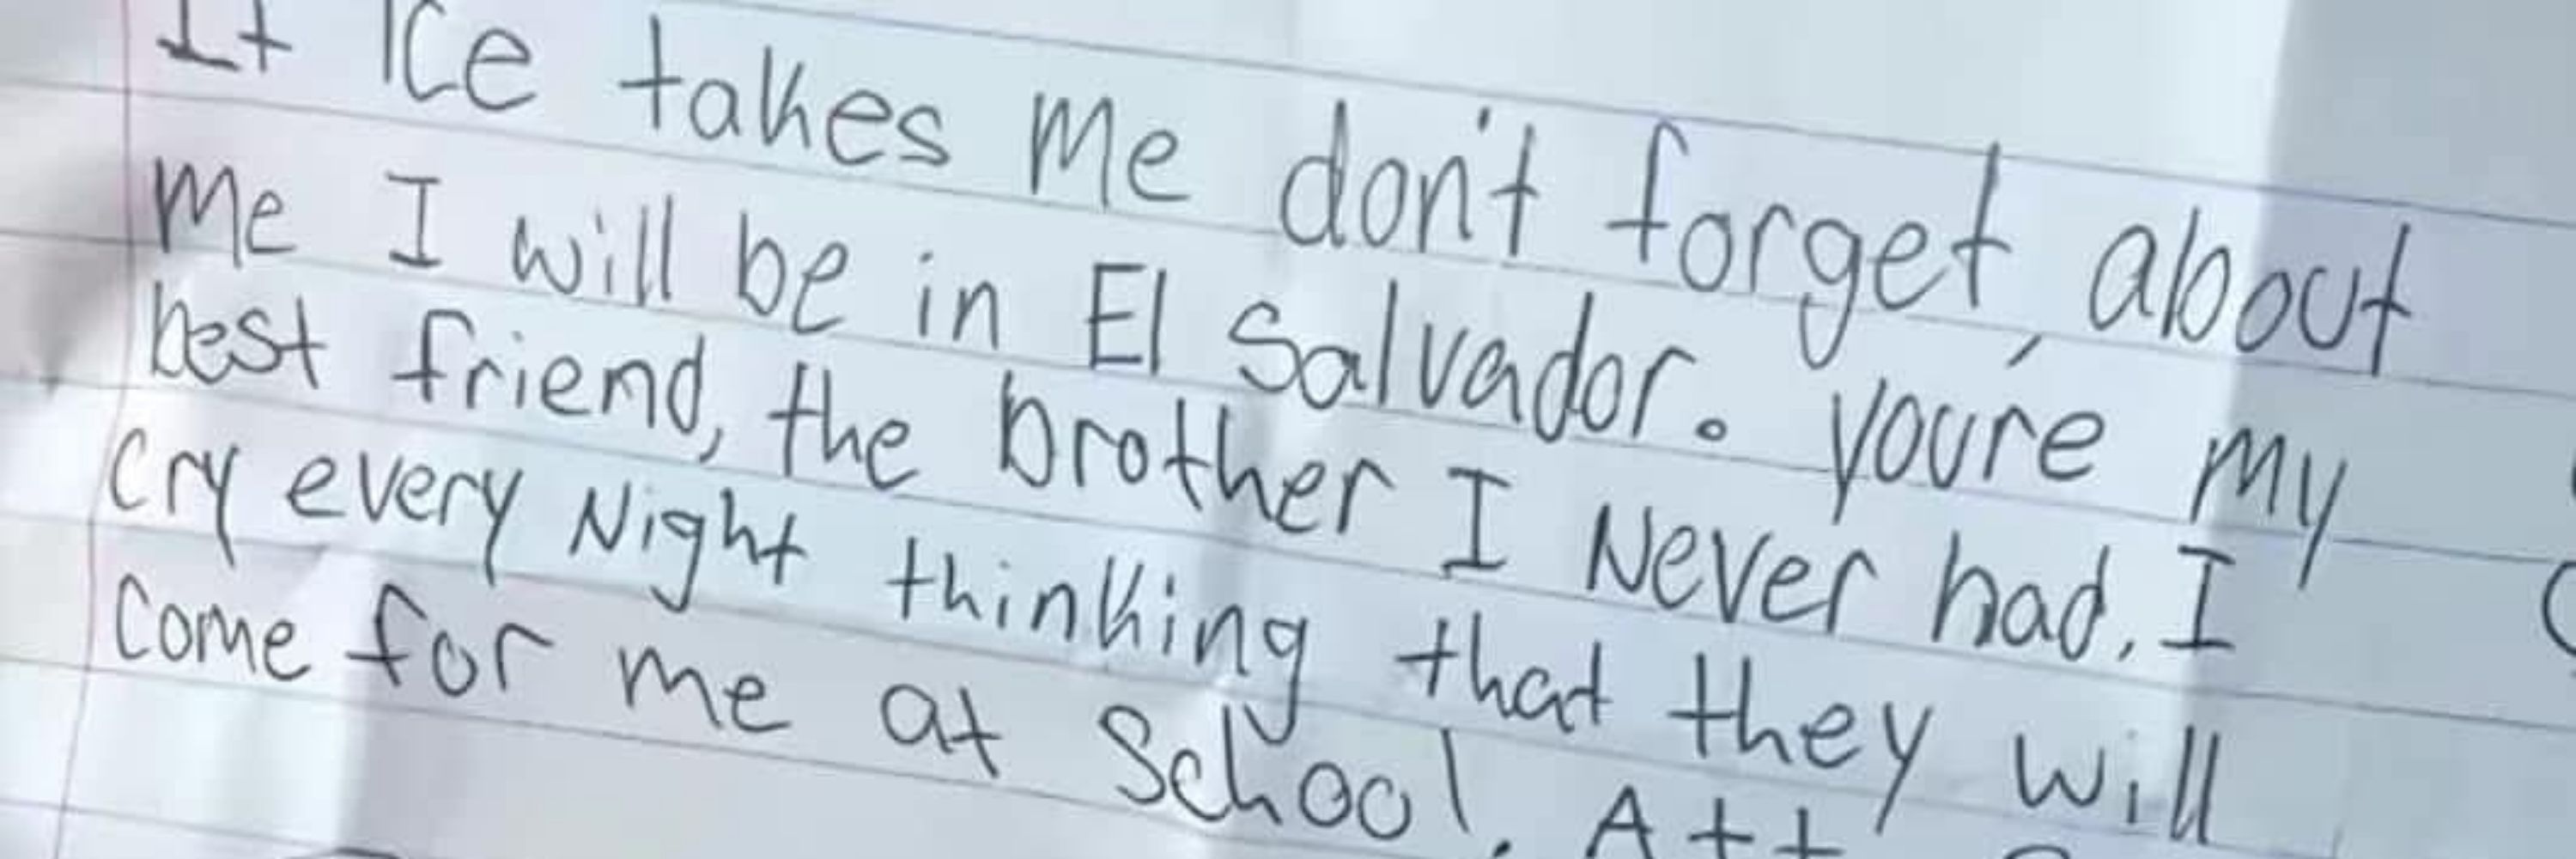 If Ice takes me don't forget about
me I will be in El Salvador. you're my
best friend, the brother I Never had. I
cry every Night thinking that they will
come for me at School. Att